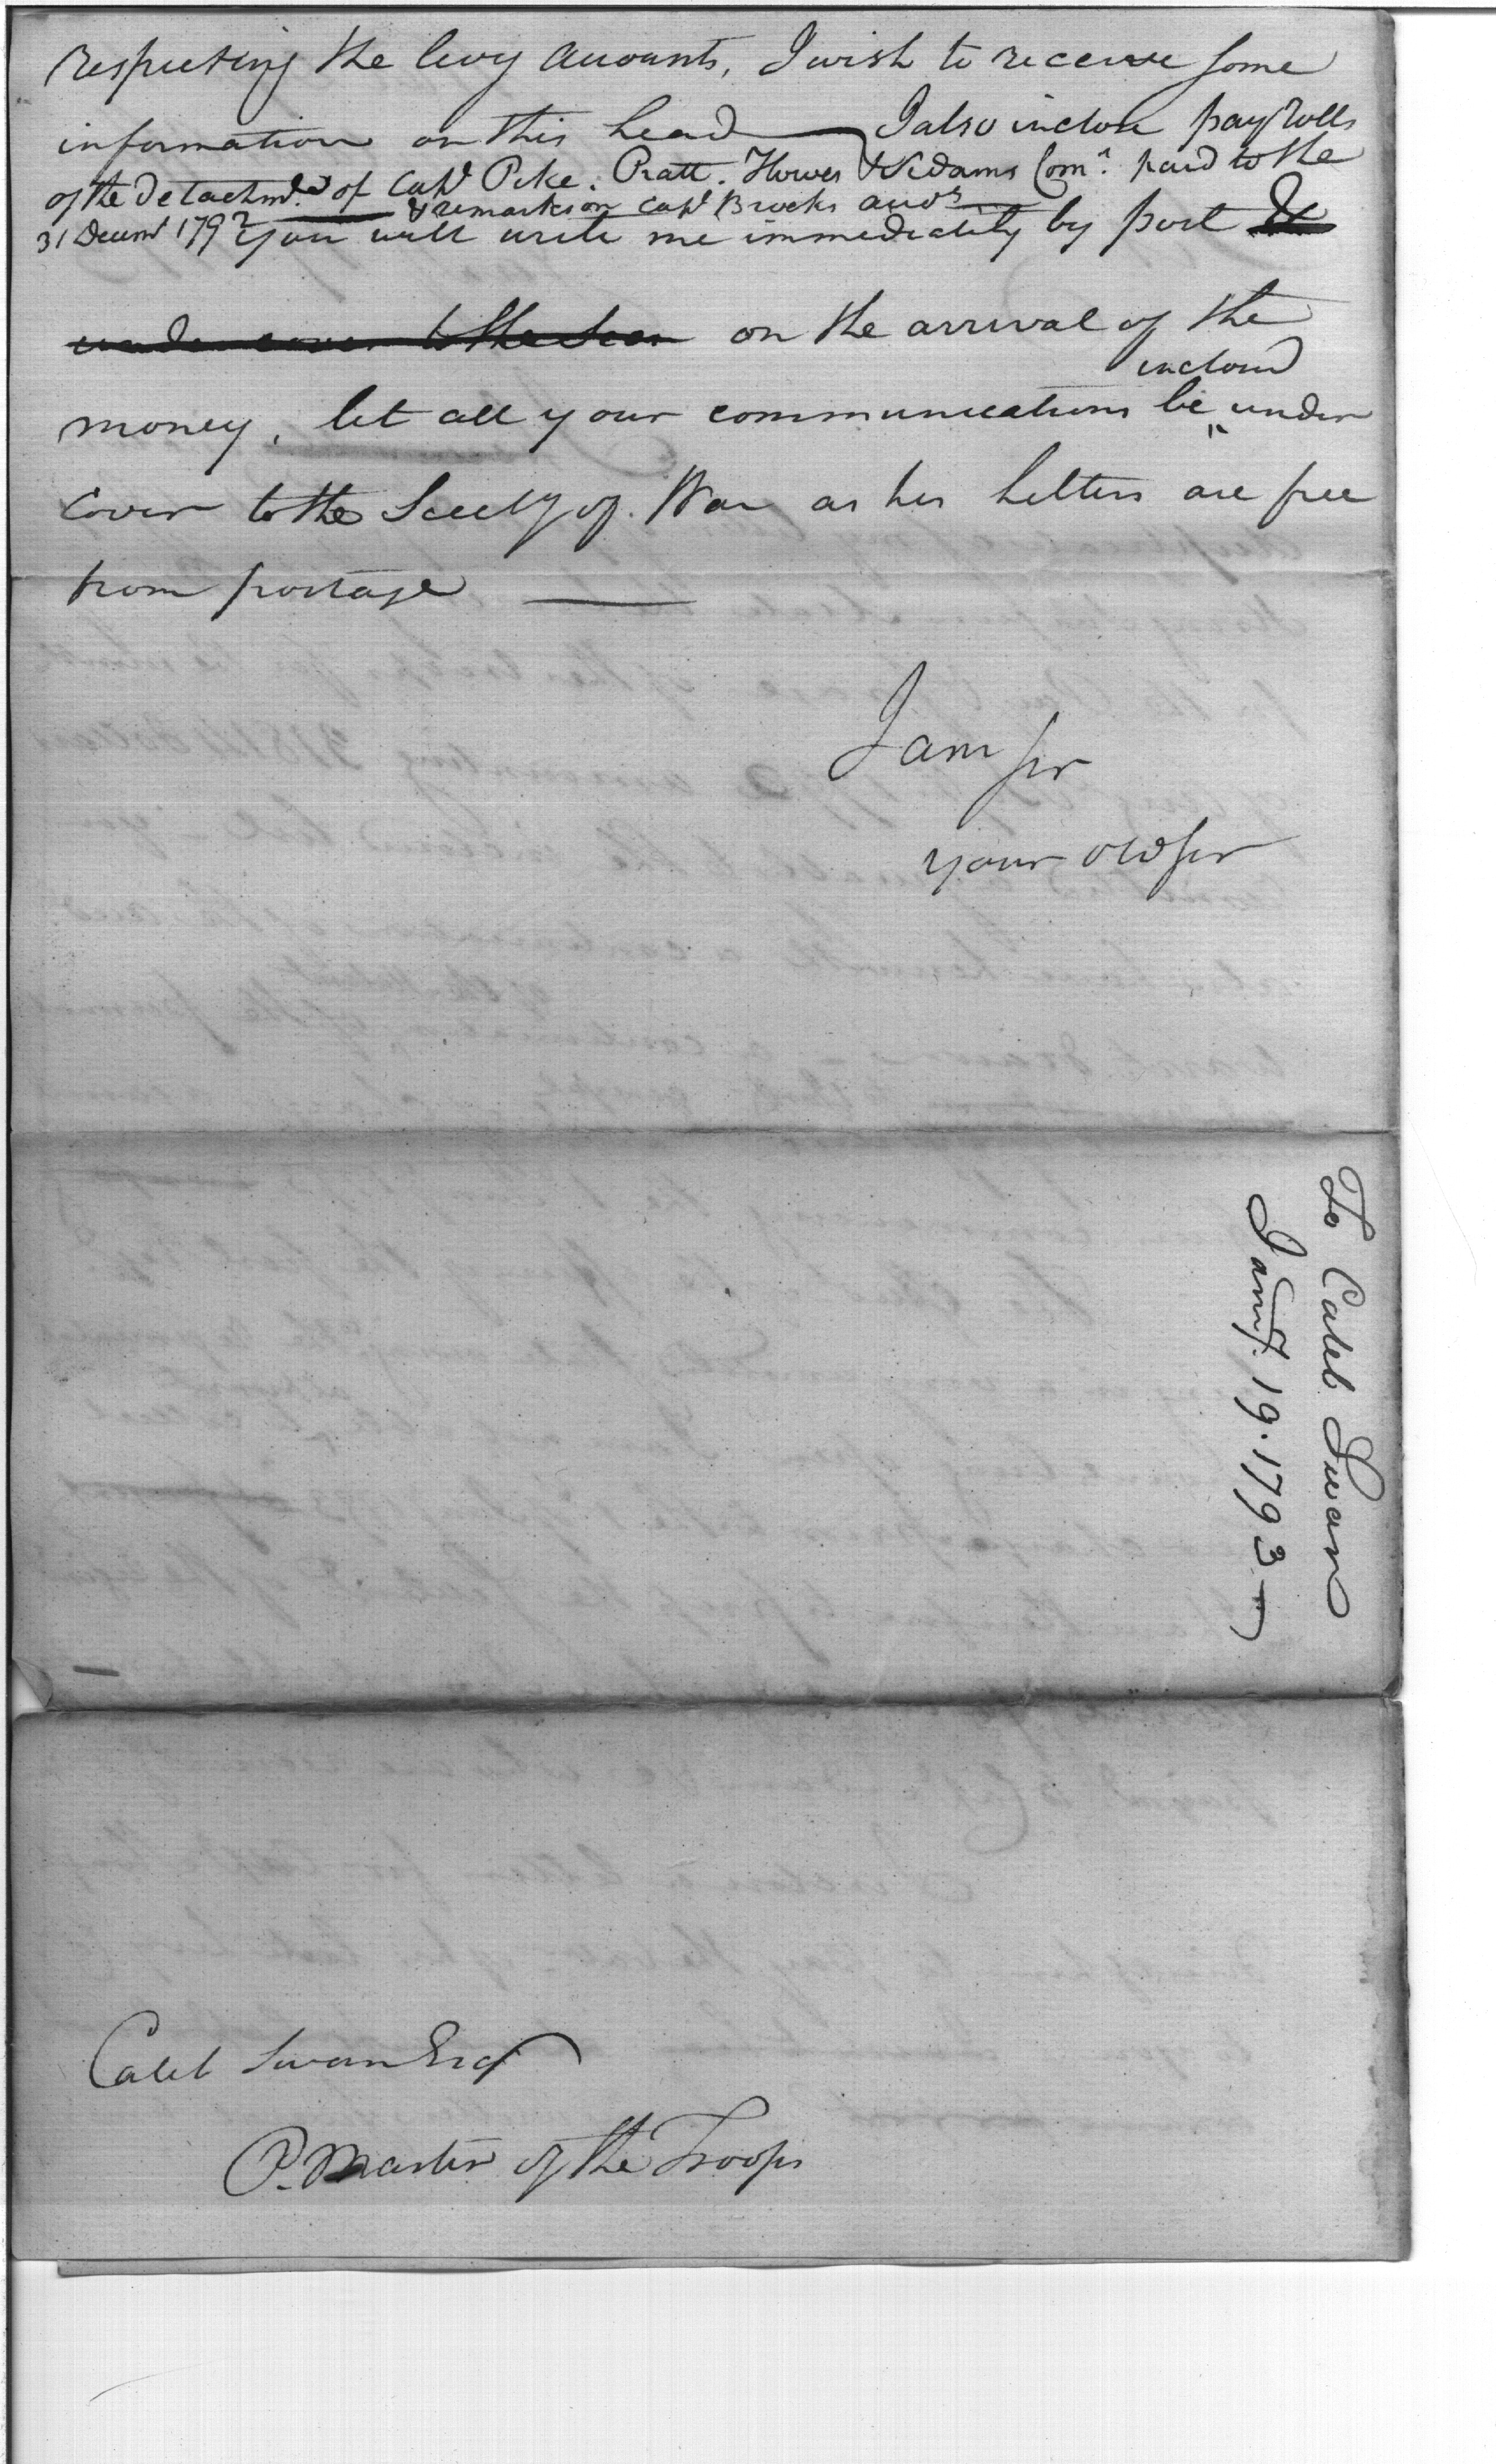 respecting the levy accounts, I wish to receive some
information on this head — I also inclose pay rolls
of the detachmts of Capt Pike. Pratt. Howes & Adams Comn. paid to the
31 Decemr 1792 — & remarks on Capt Brooks accots —
You will write me immediately by post &
under cover to the Secr on the arrival of the
money, let all your communications be inclosed under
cover to the Secrety of War as his letters are free
from postage —
I am sir
your obd ser
To Caleb Swan
Jany. 19. 1793
Caleb Swan Esq
P. Master of the Troops